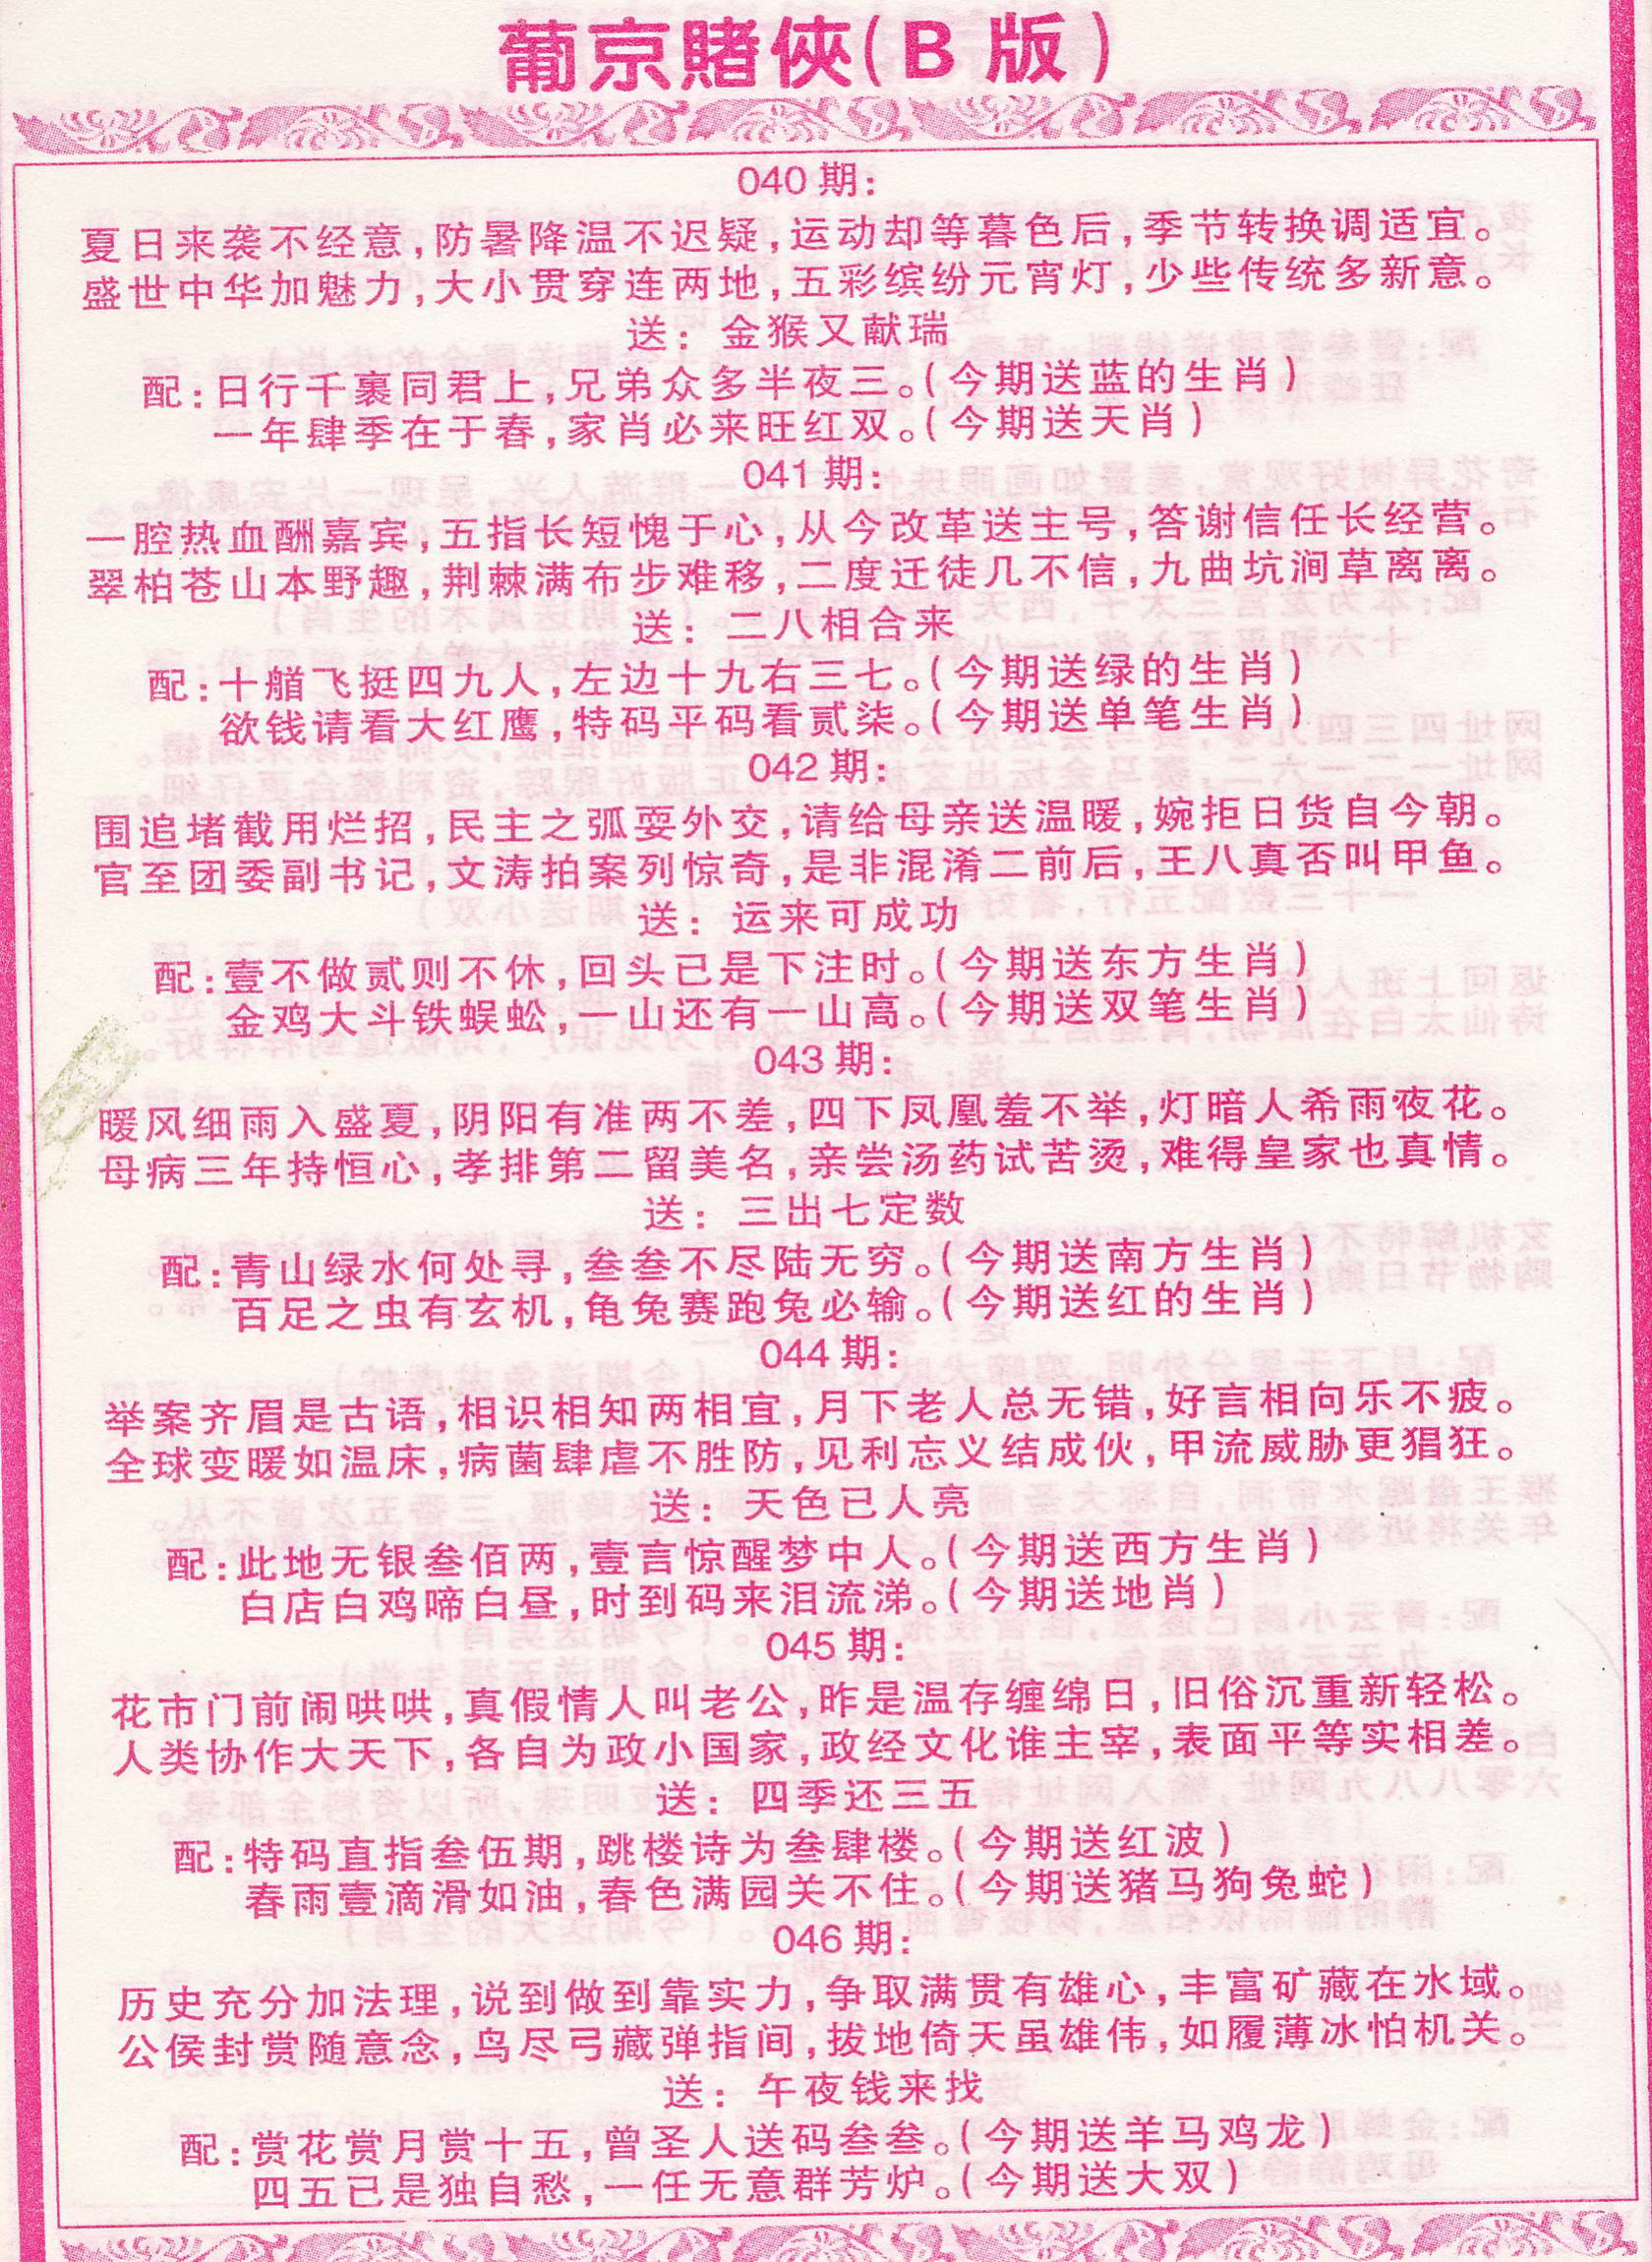 葡京賭俠(B 版)
040 期:
夏日来袭不经意,防暑降温不迟疑,运动却等暮色后,季节转换调适宜。
盛世中华加魅力,大小贯穿连两地,五彩缤纷元宵灯,少些传统多新意。
送: 金猴又献瑞
配:日行千裹同君上,兄弟众多半夜三。(今期送蓝的生肖)
一年肆季在于春,家肖必来旺红双。(今期送天肖)
041 期:
一腔热血酬嘉宾,五指长短愧于心,从今改革送主号,答谢信任长经营。
翠柏苍山本野趣,荆棘满布步难移,二度迁徒几不信,九曲坑涧草离离。
送: 二八相合来
配:十艏飞挺四九人,左边十九右三七。(今期送绿的生肖)
欲钱请看大红鹰,特码平码看贰柒。(今期送单笔生肖)
042 期:
围追堵截用烂招,民主之弧耍外交,请给母亲送温暖,婉拒日货自今朝。
官至团委副书记,文涛拍案列惊奇,是非混淆二前后,王八真否叫甲鱼。
送: 运来可成功
配:壹不做贰则不休,回头已是下注时。(今期送东方生肖)
金鸡大斗铁蜈蚣,一山还有一山高。(今期送双笔生肖)
043 期:
暖风细雨入盛夏,阴阳有准两不差,四下凤凰羞不举,灯暗人希雨夜花。
母病三年持恒心,孝排第二留美名,亲尝汤药试苦烫,难得皇家也真情。
送: 三出七定数
配:青山绿水何处寻,叁叁不尽陆无穷。(今期送南方生肖)
百足之虫有玄机,龟兔赛跑兔必输。(今期送红的生肖)
044 期:
举案齐眉是古语,相识相知两相宜,月下老人总无错,好言相向乐不疲。
全球变暖如温床,病菌肆虐不胜防,见利忘义结成伙,甲流威胁更猖狂。
送: 天色已人亮
配:此地无银叁佰两,壹言惊醒梦中人。(今期送西方生肖)
白店白鸡啼白昼,时到码来泪流涕。(今期送地肖)
045 期:
花市门前闹哄哄,真假情人叫老公,昨是温存缠绵日,旧俗沉重新轻松。
人类协作大天下,各自为政小国家,政经文化谁主宰,表面平等实相差。
送: 四季还三五
配:特码直指叁伍期,跳楼诗为叁肆楼。(今期送红波)
春雨壹滴滑如油,春色满园关不住。(今期送猪马狗兔蛇)
046 期:
历史充分加法理,说到做到靠实力,争取满贯有雄心,丰富矿藏在水域。
公侯封赏随意念,鸟尽弓藏弹指间,拔地倚天虽雄伟,如履薄冰怕机关。
送: 午夜钱来找
配:赏花赏月赏十五,曾圣人送码叁叁。(今期送羊马鸡龙)
四五己是独自愁,一任无意群芳炉。(今期送大双)